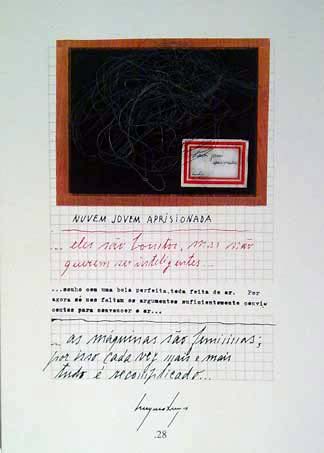 NUVEM JOVEM APRISIONADA
... eles são bonitos, mas não
querem ser inteligentes ...
...sonho com uma bola perfeita,toda feita de ar. Por
agora só nos faltam os argumentos suficientemente convin
centes para convencer o ar...
... as máquinas são femininas;
por isso cada vez mais e mais
tudo é recomplicado...
.28